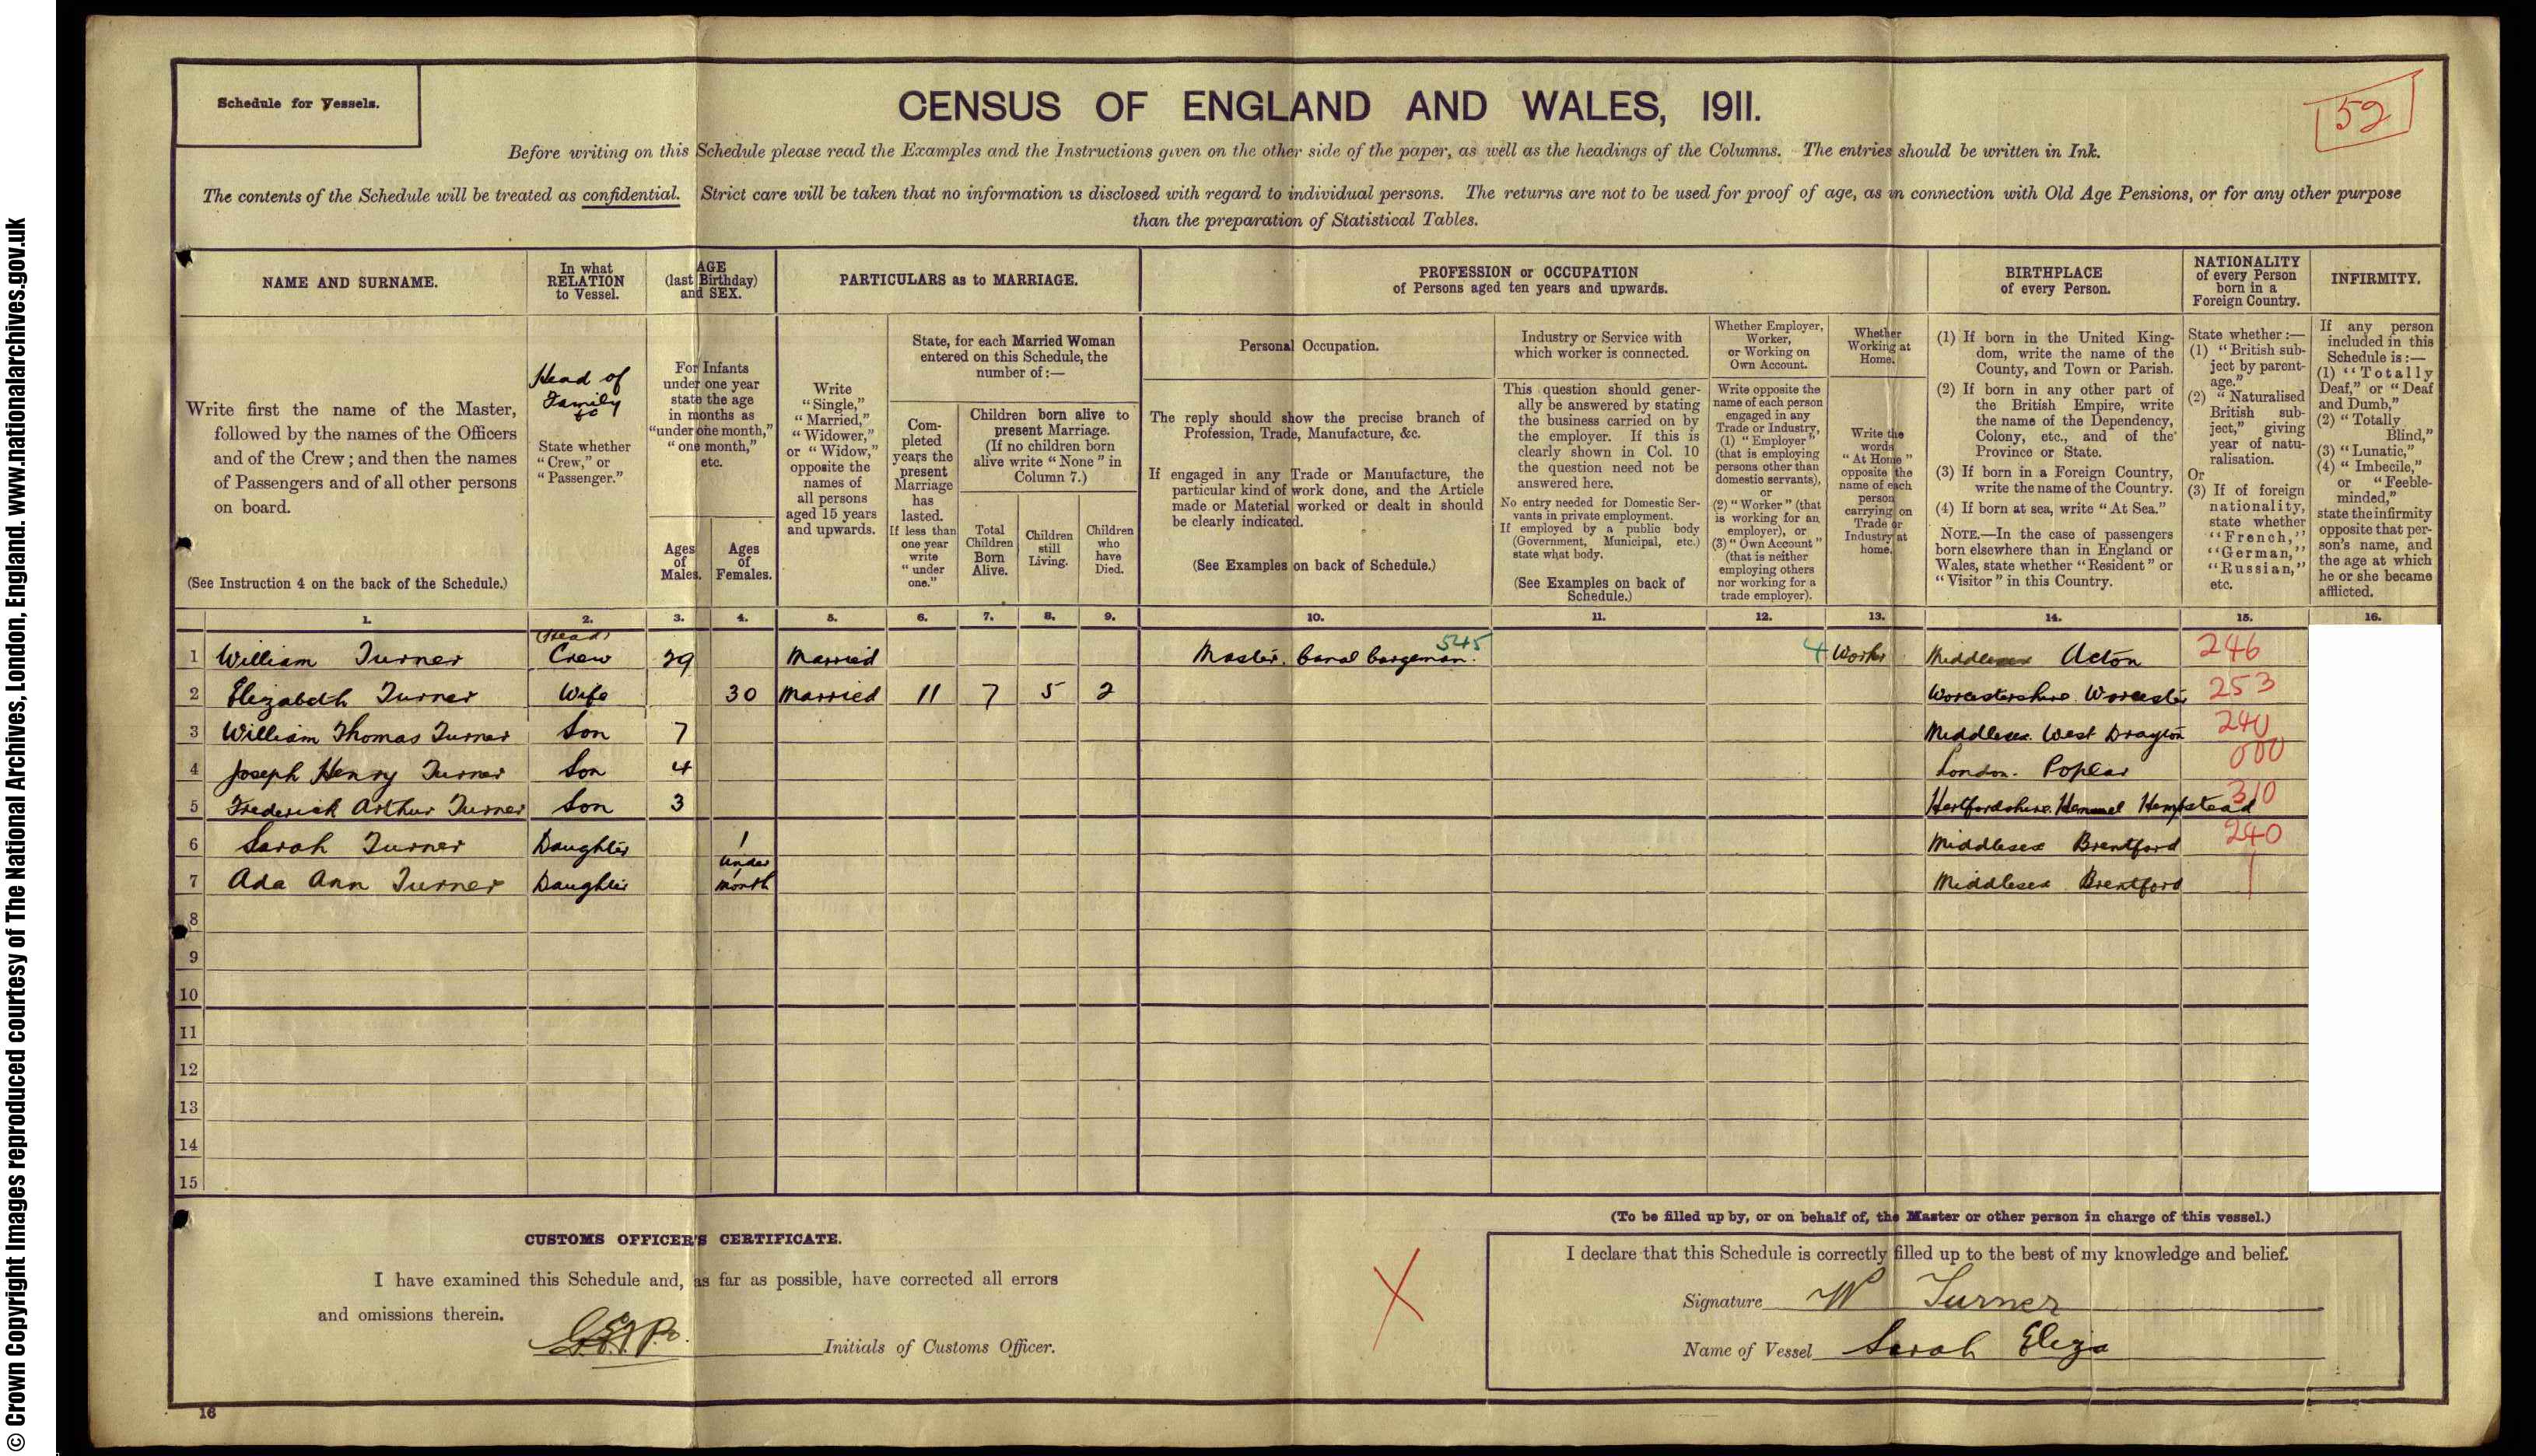 © Crown Copyright Images reproduced courtesy of The National Archives, London, England. www.nationalarchives.gov.uk
Schedule for Vessels.
CENSUS OF ENGLAND AND WALES, 1911.
52
Before writing on this Schedule please read the Examples and the Instructions given on the other side of the paper, as well as the headings of the Columns. The entries should be written in Ink.
The contents of the Schedule will be treated as confidential. Strict care will be taken that no information is disclosed with regard to individual persons. The returns are not to be used for proof of age, as in connection with Old Age Pensions, or for any other purpose
than the preparation of Statistical Tables.
NAME AND SURNAME.
Write first the name of the Master,
followed by the names of the Officers
and of the Crew; and then the names
of Passengers and of all other persons
on board.
(See Instruction 4 on the back of the Schedule.)
In what
RELATION
to Vessel.
Head of
Family
&c
State whether
"Crew," or
"Passenger."
AGE
(last Birthday)
and SEX.
For Infants
under one year
state the age
in months as
"under one month,"
"one month,"
etc.
Ages
of
Males.
Ages
of
Females.
PARTICULARS as to MARRIAGE.
Write
"Single,"
"Married,"
"Widower,"
or "Widow,"
opposite the
names of
all persons
aged 15 years
and upwards.
State, for each Married Woman
entered on this Schedule, the
number of:—
Com-
pleted
years the
present
Marriage
has
lasted.
If less than
one year
write
"under
one."
Children born alive to
present Marriage.
(If no children born
alive write "None" in
Column 7.)
Total
Children
Born
Alive.
Children
still
Living.
Children
who
have
Died.
PROFESSION or OCCUPATION
of Persons aged ten years and upwards.
Personal Occupation.
The reply should show the precise branch of
Profession, Trade, Manufacture, &c.
If engaged in any Trade or Manufacture, the
particular kind of work done, and the Article
made or Material worked or dealt in should
be clearly indicated.
(See Examples on back of Schedule.)
Industry or Service with
which worker is connected.
This question should gener-
ally be answered by stating
the business carried on by
the employer. If this is
clearly shown in Col. 10
the question need not be
answered here.
No entry needed for Domestic Ser-
vants in private employment.
If employed by a public body
(Government, Municipal, etc.)
state what body.
(See Examples on back of
Schedule.)
Whether Employer,
Worker,
or Working on
Own Account.
Write opposite the
name of each person
engaged in any
Trade or Industry,
(1) "Employer"
(that is employing
persons other than
domestic servants),
or
(2) "Worker" (that
is working for an
employer), or
(3) "Own Account"
(that is neither
employing others
nor working for a
trade employer).
Whether
Working at
Home.
Write the
words
"At Home"
opposite the
name of each
person
carrying on
Trade or
Industry at
home.
BIRTHPLACE
of every Person.
(1) If born in the United King-
dom, write the name of the
County, and Town or Parish.
(2) If born in any other part of
the British Empire, write
the name of the Dependency,
Colony, etc., and of the
Province or State.
(3) If born in a Foreign Country,
write the name of the Country.
(4) If born at sea, write "At Sea."
NOTE.—In the case of passengers
born elsewhere than in England or
Wales, state whether "Resident" or
"Visitor" in this Country.
NATIONALITY
of every Person
born in a
Foreign Country.
State whether:—
(1) "British sub-
ject by parent-
age."
(2) "Naturalised
British sub-
ject," giving
year of natu-
ralisation.
Or
(3) If of foreign
nationality,
state whether
"French,"
"German,"
"Russian,"
etc.
INFIRMITY.
If any person
included in this
Schedule is:—
(1) "Totally
Deaf," or "Deaf
and Dumb,"
(2) "Totally
Blind,"
(3) "Lunatic,"
(4) "Imbecile,"
or "Feeble-
minded,"
state the infirmity
opposite that per-
son's name, and
the age at which
he or she became
afflicted.
1. 2. 3. 4. 5. 6. 7. 8. 9. 10. 11. 12. 13. 14. 15. 16.
(Head)
1 William Turner Crew 29 Married Master. Canal bargeman. 545 4 Worker Middlesex Acton 246
2 Elizabeth Turner Wife 30 Married 11 7 5 2 Worcestershire. Worcester 253
3 William Thomas Turner Son 7 Middlesex. West Drayton 240
4 Joseph Henry Turner Son 4 London. Poplar 000
5 Frederick Arthur Turner Son 3 Hertfordshire. Hemmel Hempstead 310
6 Sarah Turner Daughter 1 Middlesex Brentford 240
7 Ada Ann Turner Daughter under 1 month Middlesex Brentford
8
9
10
11
12
13
14
15
CUSTOMS OFFICER'S CERTIFICATE.
I have examined this Schedule and, as far as possible, have corrected all errors
and omissions therein.
Initials of Customs Officer.
(To be filled up by, or on behalf of, the Master or other person in charge of this vessel.)
I declare that this Schedule is correctly filled up to the best of my knowledge and belief.
Signature W Turner
Name of Vessel Sarah Eliza
16